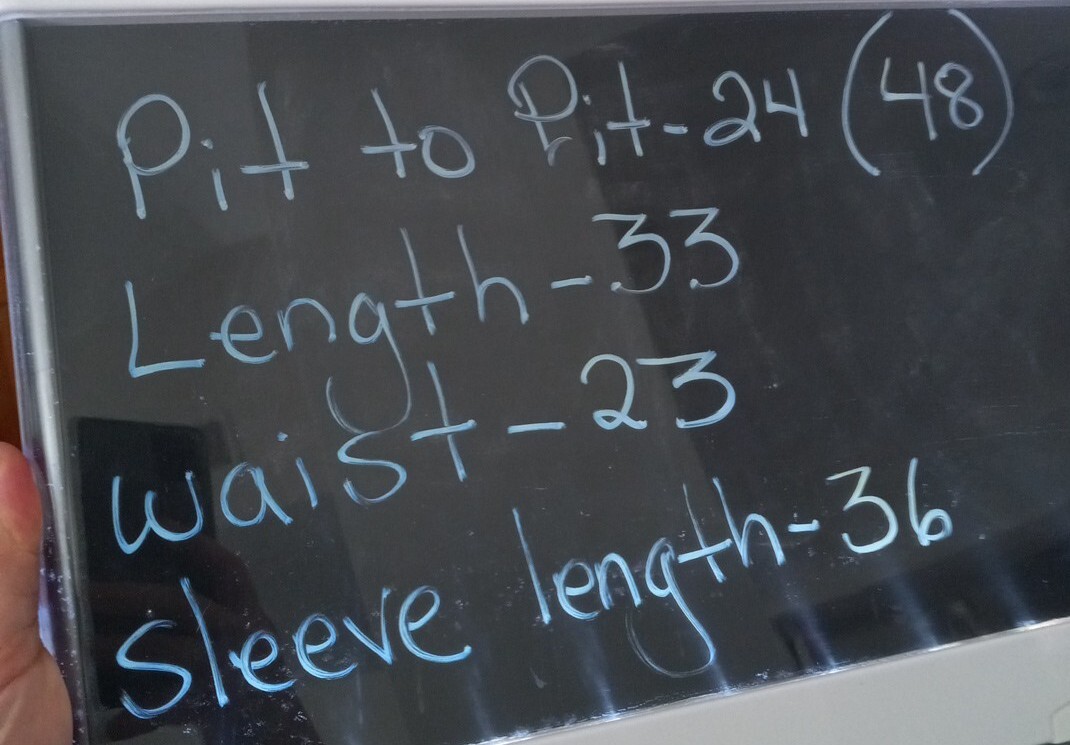 Pit to Pit-24 (48)
Length-33
waist-23
sleeve length-36